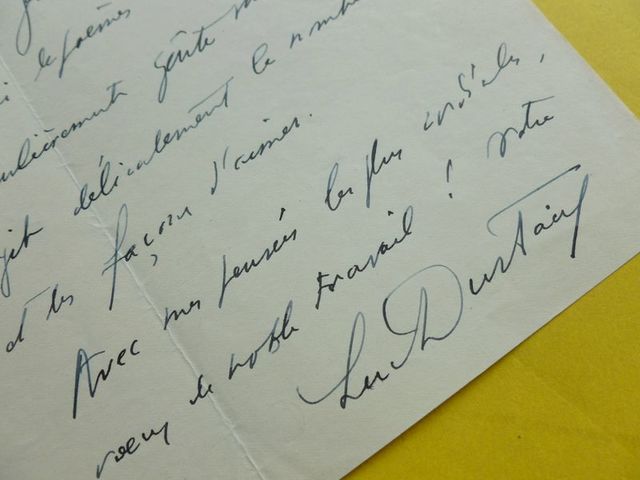 de poèmes
goûté
délicatement le nombre
et les façons d'aimer.
Avec mes pensées les plus cordiales,
voeux de noble travail ! Votre
Luc Durtain